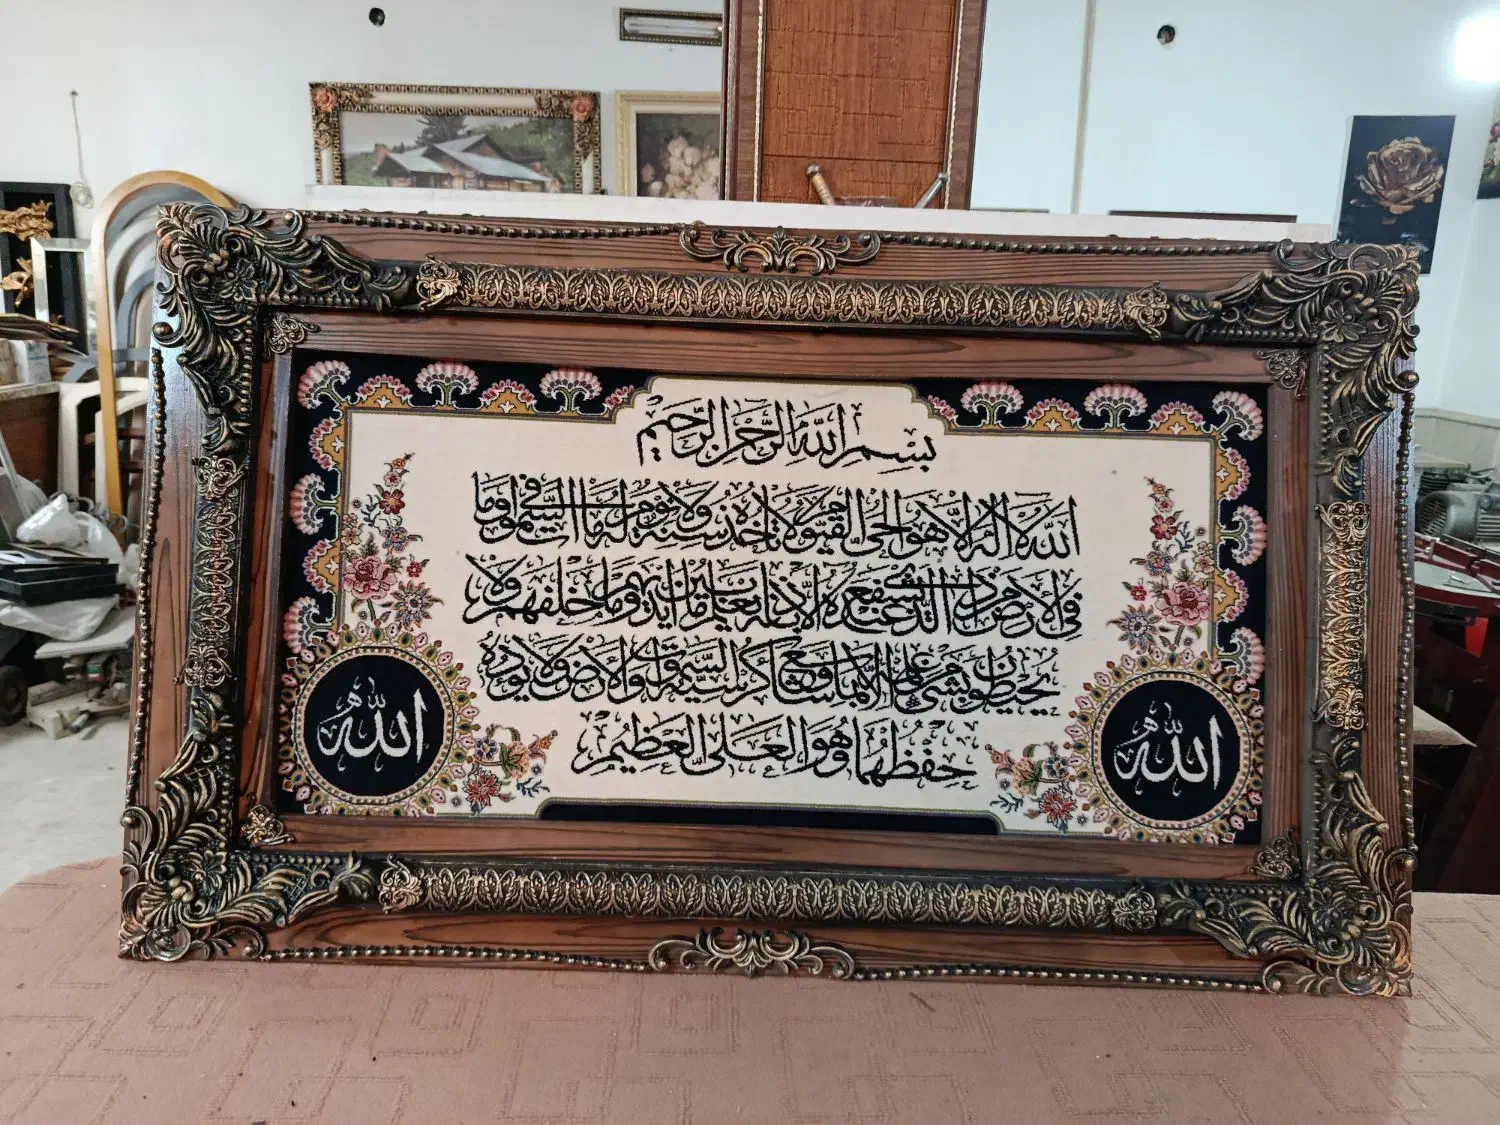 بِسْمِ اللَّهِ الرَّحْمٰنِ الرَّحِيمِ
اللَّهُ لَا إِلٰهَ إِلَّا هُوَ الْحَيُّ الْقَيُّومُ لَا تَأْخُذُهُ سِنَةٌ وَلَا نَوْمٌ لَهُ مَا فِي السَّمٰوَاتِ وَمَا
فِي الْأَرْضِ مَنْ ذَا الَّذِي يَشْفَعُ عِنْدَهُ إِلَّا بِإِذْنِهِ يَعْلَمُ مَا بَيْنَ أَيْدِيهِمْ وَمَا خَلْفَهُمْ وَلَا
يُحِيطُونَ بِشَيْءٍ مِنْ عِلْمِهِ إِلَّا بِمَا شَاءَ وَسِعَ كُرْسِيُّهُ السَّمٰوَاتِ وَالْأَرْضَ وَلَا يَئُودُهُ
حِفْظُهُمَا وَهُوَ الْعَلِيُّ الْعَظِيمُ
اللّٰه
اللّٰه